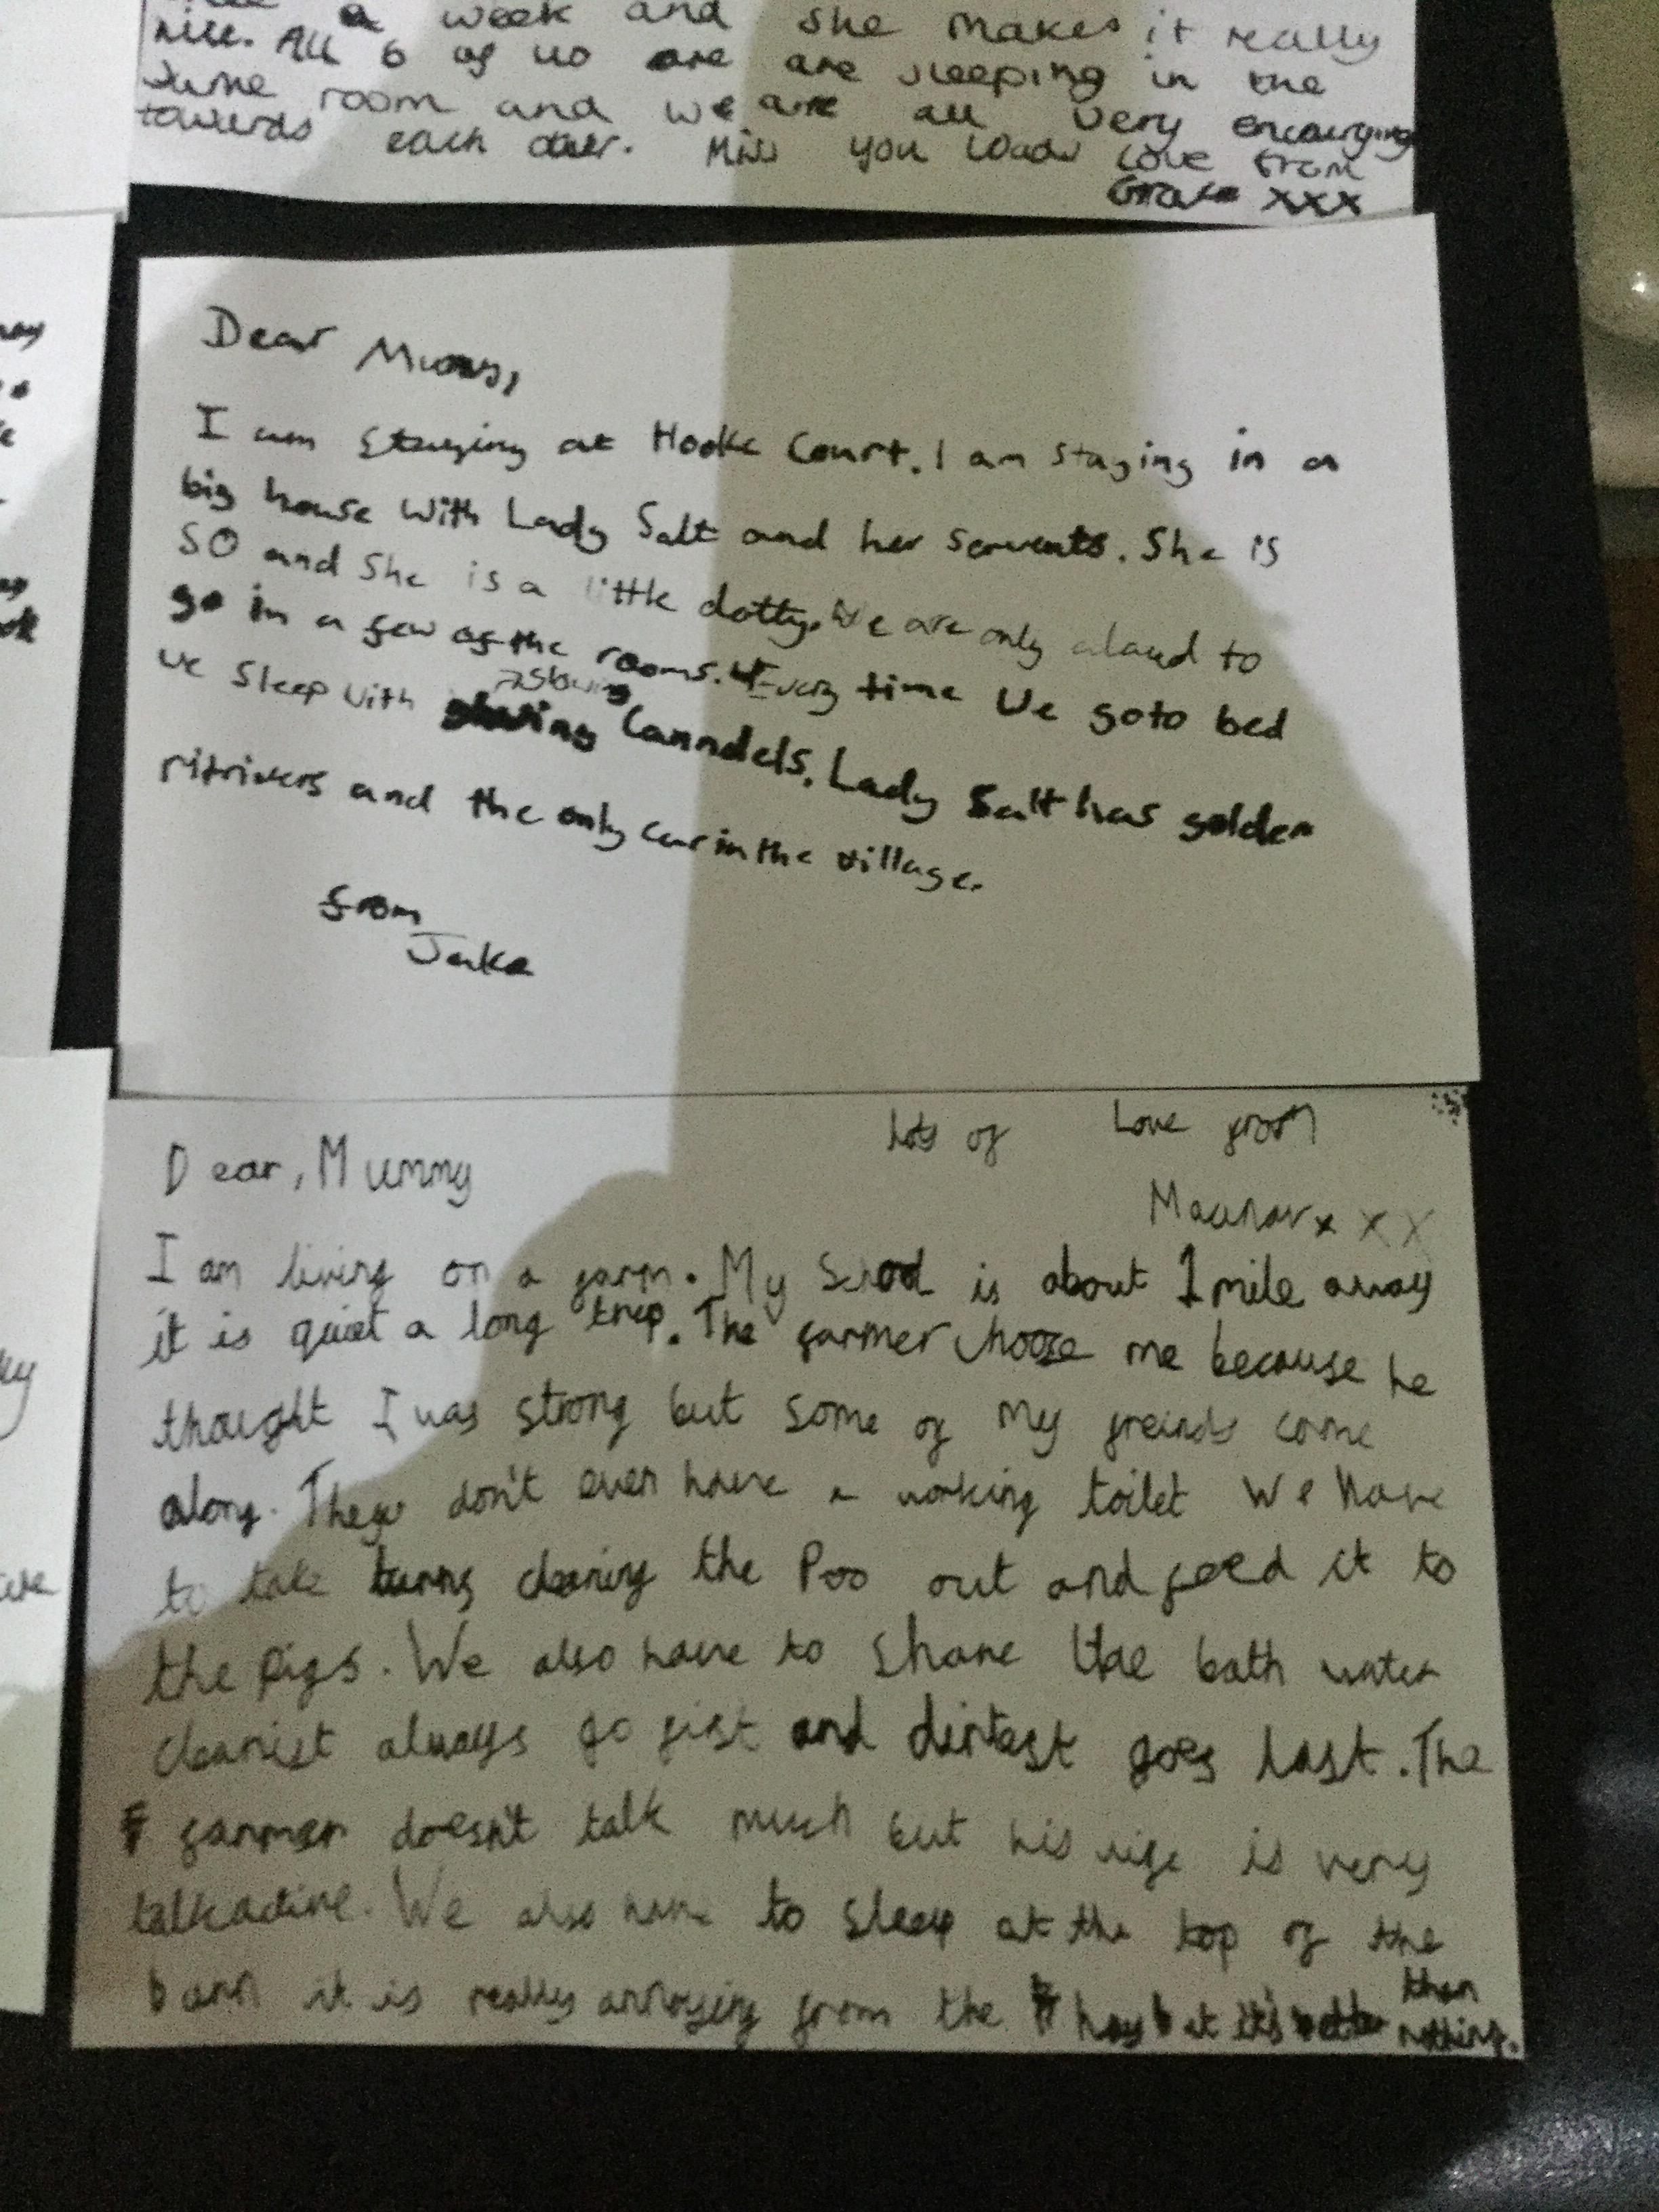 a week and she makes it really
nice. All 6 of us are are sleeping in the
same room and we are all very encouraging
towards each other. Miss you loads love from
Grace xxx
Dear Mummy,
I am staying at Hooke Court. I am staying in a
big house with Lady Salt and her servents. She is
50 and She is a little dotty. We are only alaud to
go in a few of the rooms. Every time we go to bed
we sleep with glowing Canndels. Lady Salt has golden
ritrivers and the only car in the village.
from
Jake
Dear, Mummy
lots of Love from
x X X
I am living on a farm. My School is about 1 mile away
it is quiet a long trip. The farmer choose me because he
thought I was strong but some of my freinds come
along. They don't even have a working toilet We have
to take turns cleaning the Poo out and feed it to
the pigs. We also have to share the bath water
cleanist always go fist and dirtest goes last. The
farmer doesn't talk much but his wife is very
talkadive. We also have to sleep at the top of the
barn it is really annoying from the hay but it's better than
nothing.